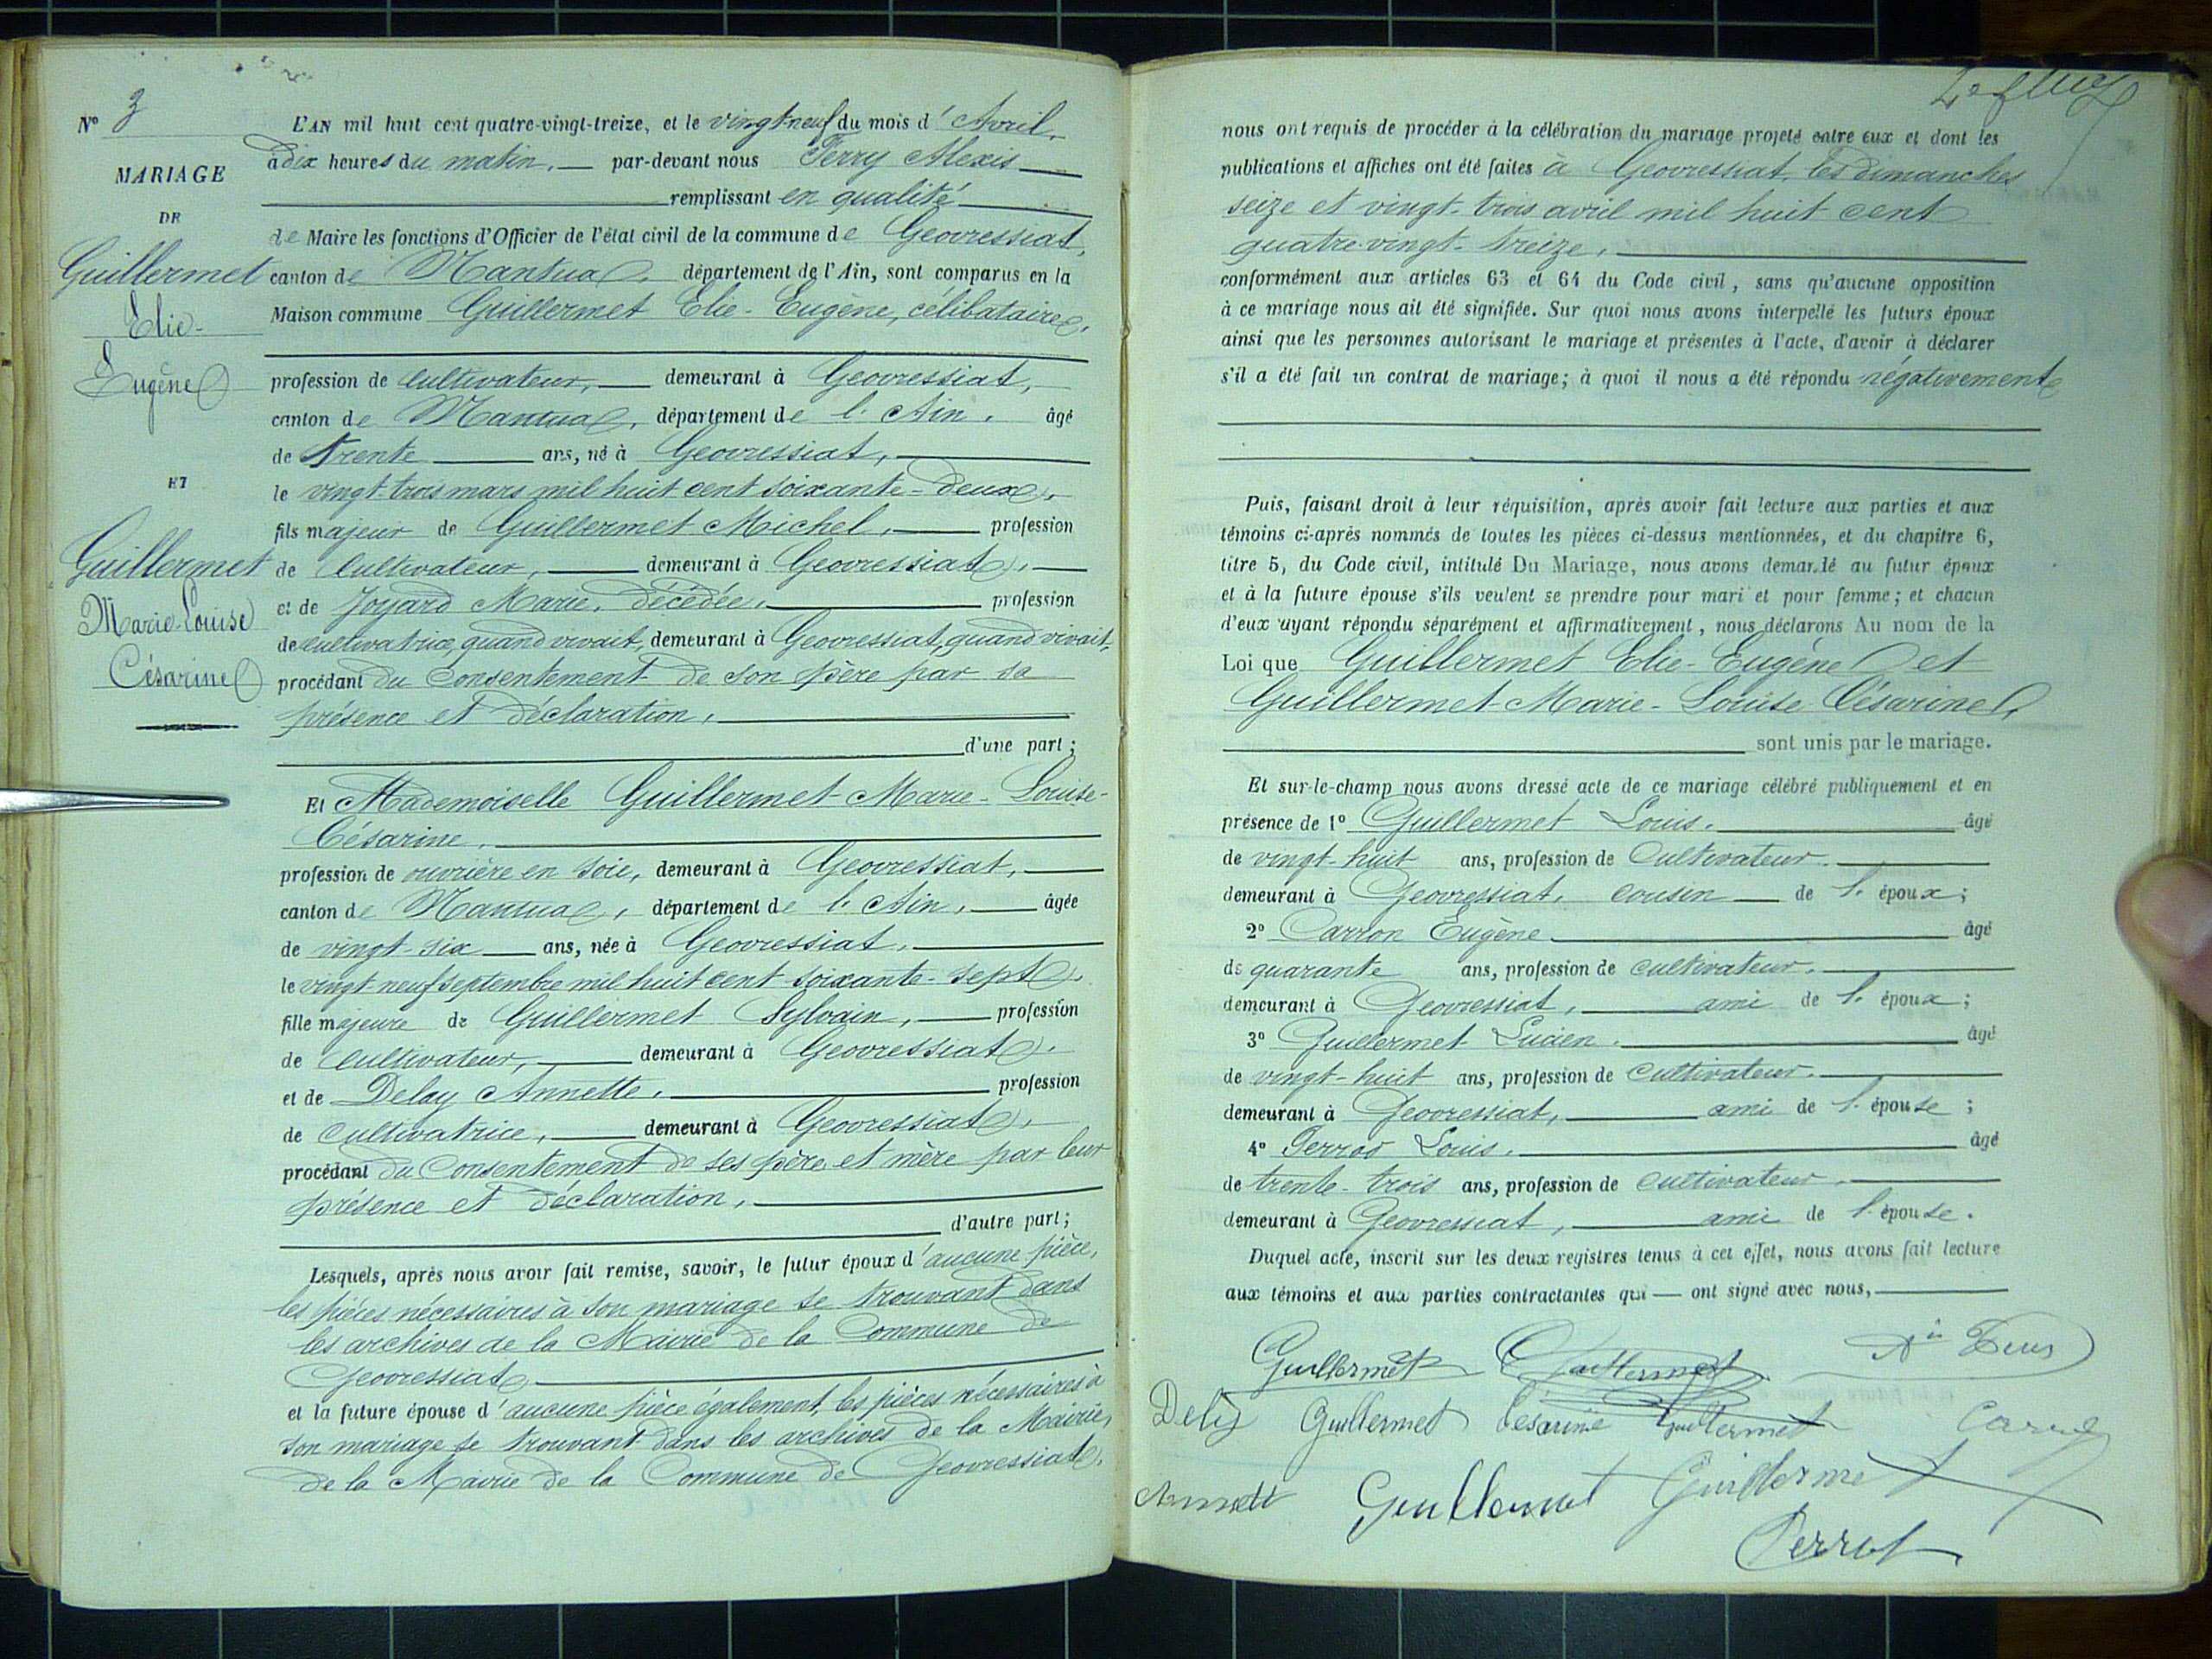 N° 3
MARIAGE
DE
Guillermet
Elie-
Eugène
ET
Guillermet
Marie-Louise
Césarine
L'AN mil huit cent quatre-vingt-treize, et le vingt-neuf du mois d'Avril,
à dix heures du matin, par-devant nous Ferry Alexis
remplissant en qualité
de Maire les fonctions d'Officier de l'état civil de la commune de Geovressiat,
canton de Nantua, département de l'Ain, sont comparus en la
Maison commune Guillermet Elie-Eugène, célibataire,
profession de cultivateur, demeurant à Geovressiat,
canton de Nantua, département de l'Ain, âgé
de trente ans, né à Geovressiat,
le vingt-trois mars mil huit cent soixante-deux,
fils majeur de Guillermet Michel, profession
de Cultivateur, demeurant à Geovressiat,
et de Joyard Marie, décédée, profession
de cultivatrice, quand vivait, demeurant à Geovressiat, quand vivait,
procédant du Consentement de son père par sa
présence et déclaration,
d'une part;
Et Mademoiselle Guillermet Marie-Louise-
Césarine,
profession de ouvrière en soie, demeurant à Geovressiat,
canton de Nantua, département de l'Ain, âgée
de vingt-six ans, née à Geovressiat,
le vingt neuf septembre mil huit cent soixante-sept,
fille majeure de Guillermet Sylvain, profession
de Cultivateur, demeurant à Geovressiat,
et de Delay Annette, profession
de Cultivatrice, demeurant à Geovressiat,
procédant du Consentement de ses père et mère par leur
présence et déclaration,
d'autre part;
Lesquels, après nous avoir fait remise, savoir, le futur époux d'aucune pièce,
les pièces nécessaires à son mariage se trouvant dans
les archives de la Mairie de la Commune de
Geovressiat,
et la future épouse d'aucune pièce également, les pièces nécessaires à
son mariage se trouvant dans les archives de la Mairie,
de la Mairie de la Commune de Geovressiat,
nous ont requis de procéder à la célébration du mariage projeté entre eux et dont les
publications et affiches ont été faites à Geovressiat, les dimanches
seize et vingt-trois avril mil huit cent
quatre-vingt-treize,
conformément aux articles 63 et 64 du Code civil, sans qu'aucune opposition
à ce mariage nous ait été signifiée. Sur quoi nous avons interpellé les futurs époux
ainsi que les personnes autorisant le mariage et présentes à l'acte, d'avoir à déclarer
s'il a été fait un contrat de mariage; à quoi il nous a été répondu négativement
Puis, faisant droit à leur réquisition, après avoir fait lecture aux parties et aux
témoins ci-après nommés de toutes les pièces ci-dessus mentionnées, et du chapitre 6,
titre 5, du Code civil, intitulé Du Mariage, nous avons demandé au futur époux
et à la future épouse s'ils veulent se prendre pour mari et pour femme; et chacun
d'eux ayant répondu séparément et affirmativement, nous déclarons Au nom de la
Loi que Guillermet Elie-Eugène et
Guillermet Marie-Louise Césarine,
sont unis par le mariage.
Et sur-le-champ nous avons dressé acte de ce mariage célébré publiquement et en
présence de 1° Guillermet Louis. âgé
de vingt-huit ans, profession de Cultivateur.
demeurant à Geovressiat, cousin de l'époux;
2° Carron Eugène âgé
de quarante ans, profession de cultivateur.
demeurant à Geovressiat, ami de l'époux;
3° Guillermet Lucien. âgé
de vingt-huit ans, profession de Cultivateur.
demeurant à Geovressiat, ami de l'épouse;
4° Perrod Louis. âgé
de trente-trois ans, profession de Cultivateur.
demeurant à Geovressiat, ami de l'épouse.
Duquel acte, inscrit sur les deux registres tenus à cet effet, nous avons fait lecture
aux témoins et aux parties contractantes qui ont signé avec nous,
Guillermet Guillermet
Guillermet Césarine Guillermet
Guillermet Guillermet